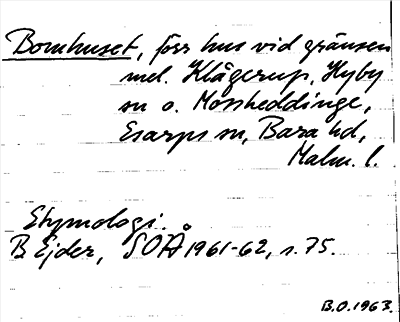 Bomhuset, förr hus vid gränsen
mel. Klågerup, Hyby
sn o. Mossheddinge,
Esarps sn, Bara hd,
Malm. l.
Etymologi.
B Ejder, SOÅ 1961-62, s. 75.
B.O. 1963.